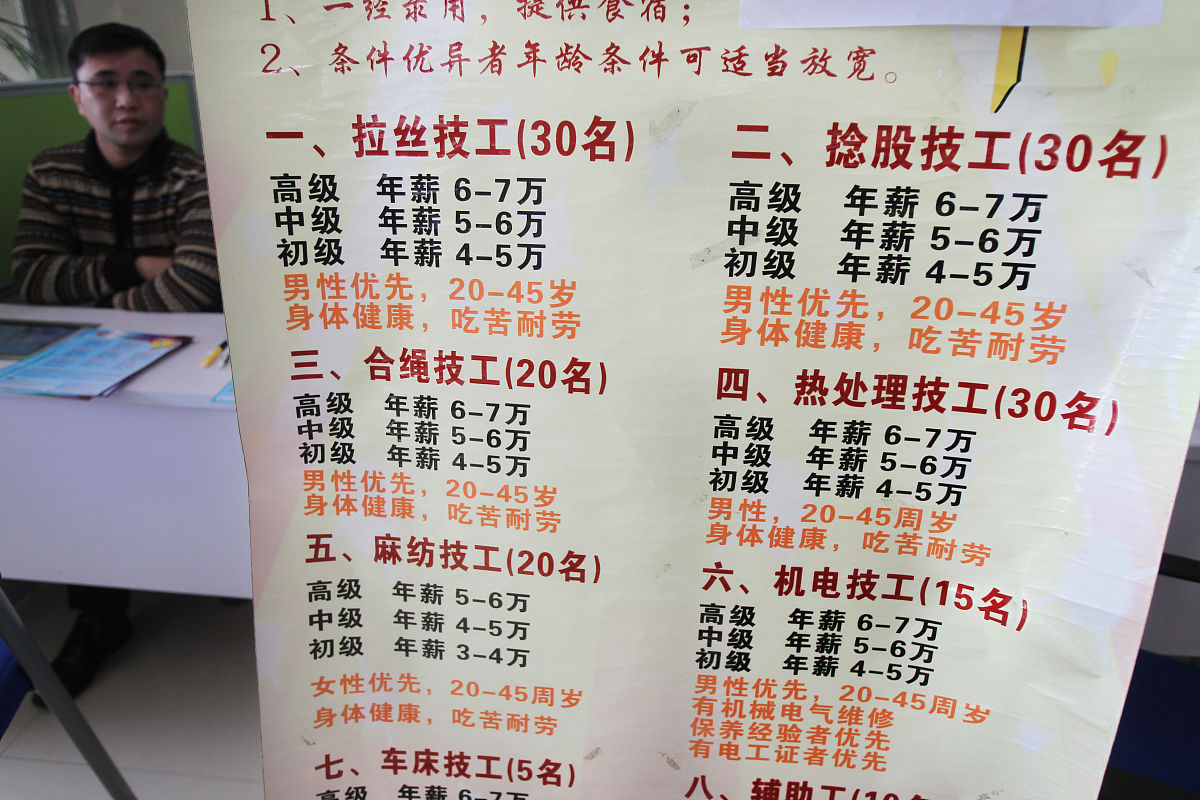 1、一经录用，提供食宿；
2、条件优异者年龄条件可适当放宽。
一、拉丝技工(30名)
高级 年薪 6-7万
中级 年薪 5-6万
初级 年薪 4-5万
男性优先，20-45岁
身体健康，吃苦耐劳
二、捻股技工(30名)
高级 年薪 6-7万
中级 年薪 5-6万
初级 年薪 4-5万
男性优先，20-45岁
身体健康，吃苦耐劳
三、合绳技工(20名)
高级 年薪 6-7万
中级 年薪 5-6万
初级 年薪 4-5万
男性优先，20-45岁
身体健康，吃苦耐劳
四、热处理技工(30名)
高级 年薪 6-7万
中级 年薪 5-6万
初级 年薪 4-5万
男性，20-45周岁
身体健康，吃苦耐劳
五、麻纺技工(20名)
高级 年薪 5-6万
中级 年薪 4-5万
初级 年薪 3-4万
女性优先，20-45周岁
身体健康，吃苦耐劳
六、机电技工(15名)
高级 年薪 6-7万
中级 年薪 5-6万
初级 年薪 4-5万
男性优先，20-45周岁
有机械电气维修
保养经验者优先
有电工证者优先
七、车床技工(5名)
高级 年薪 6-7万
八、辅助工(10名